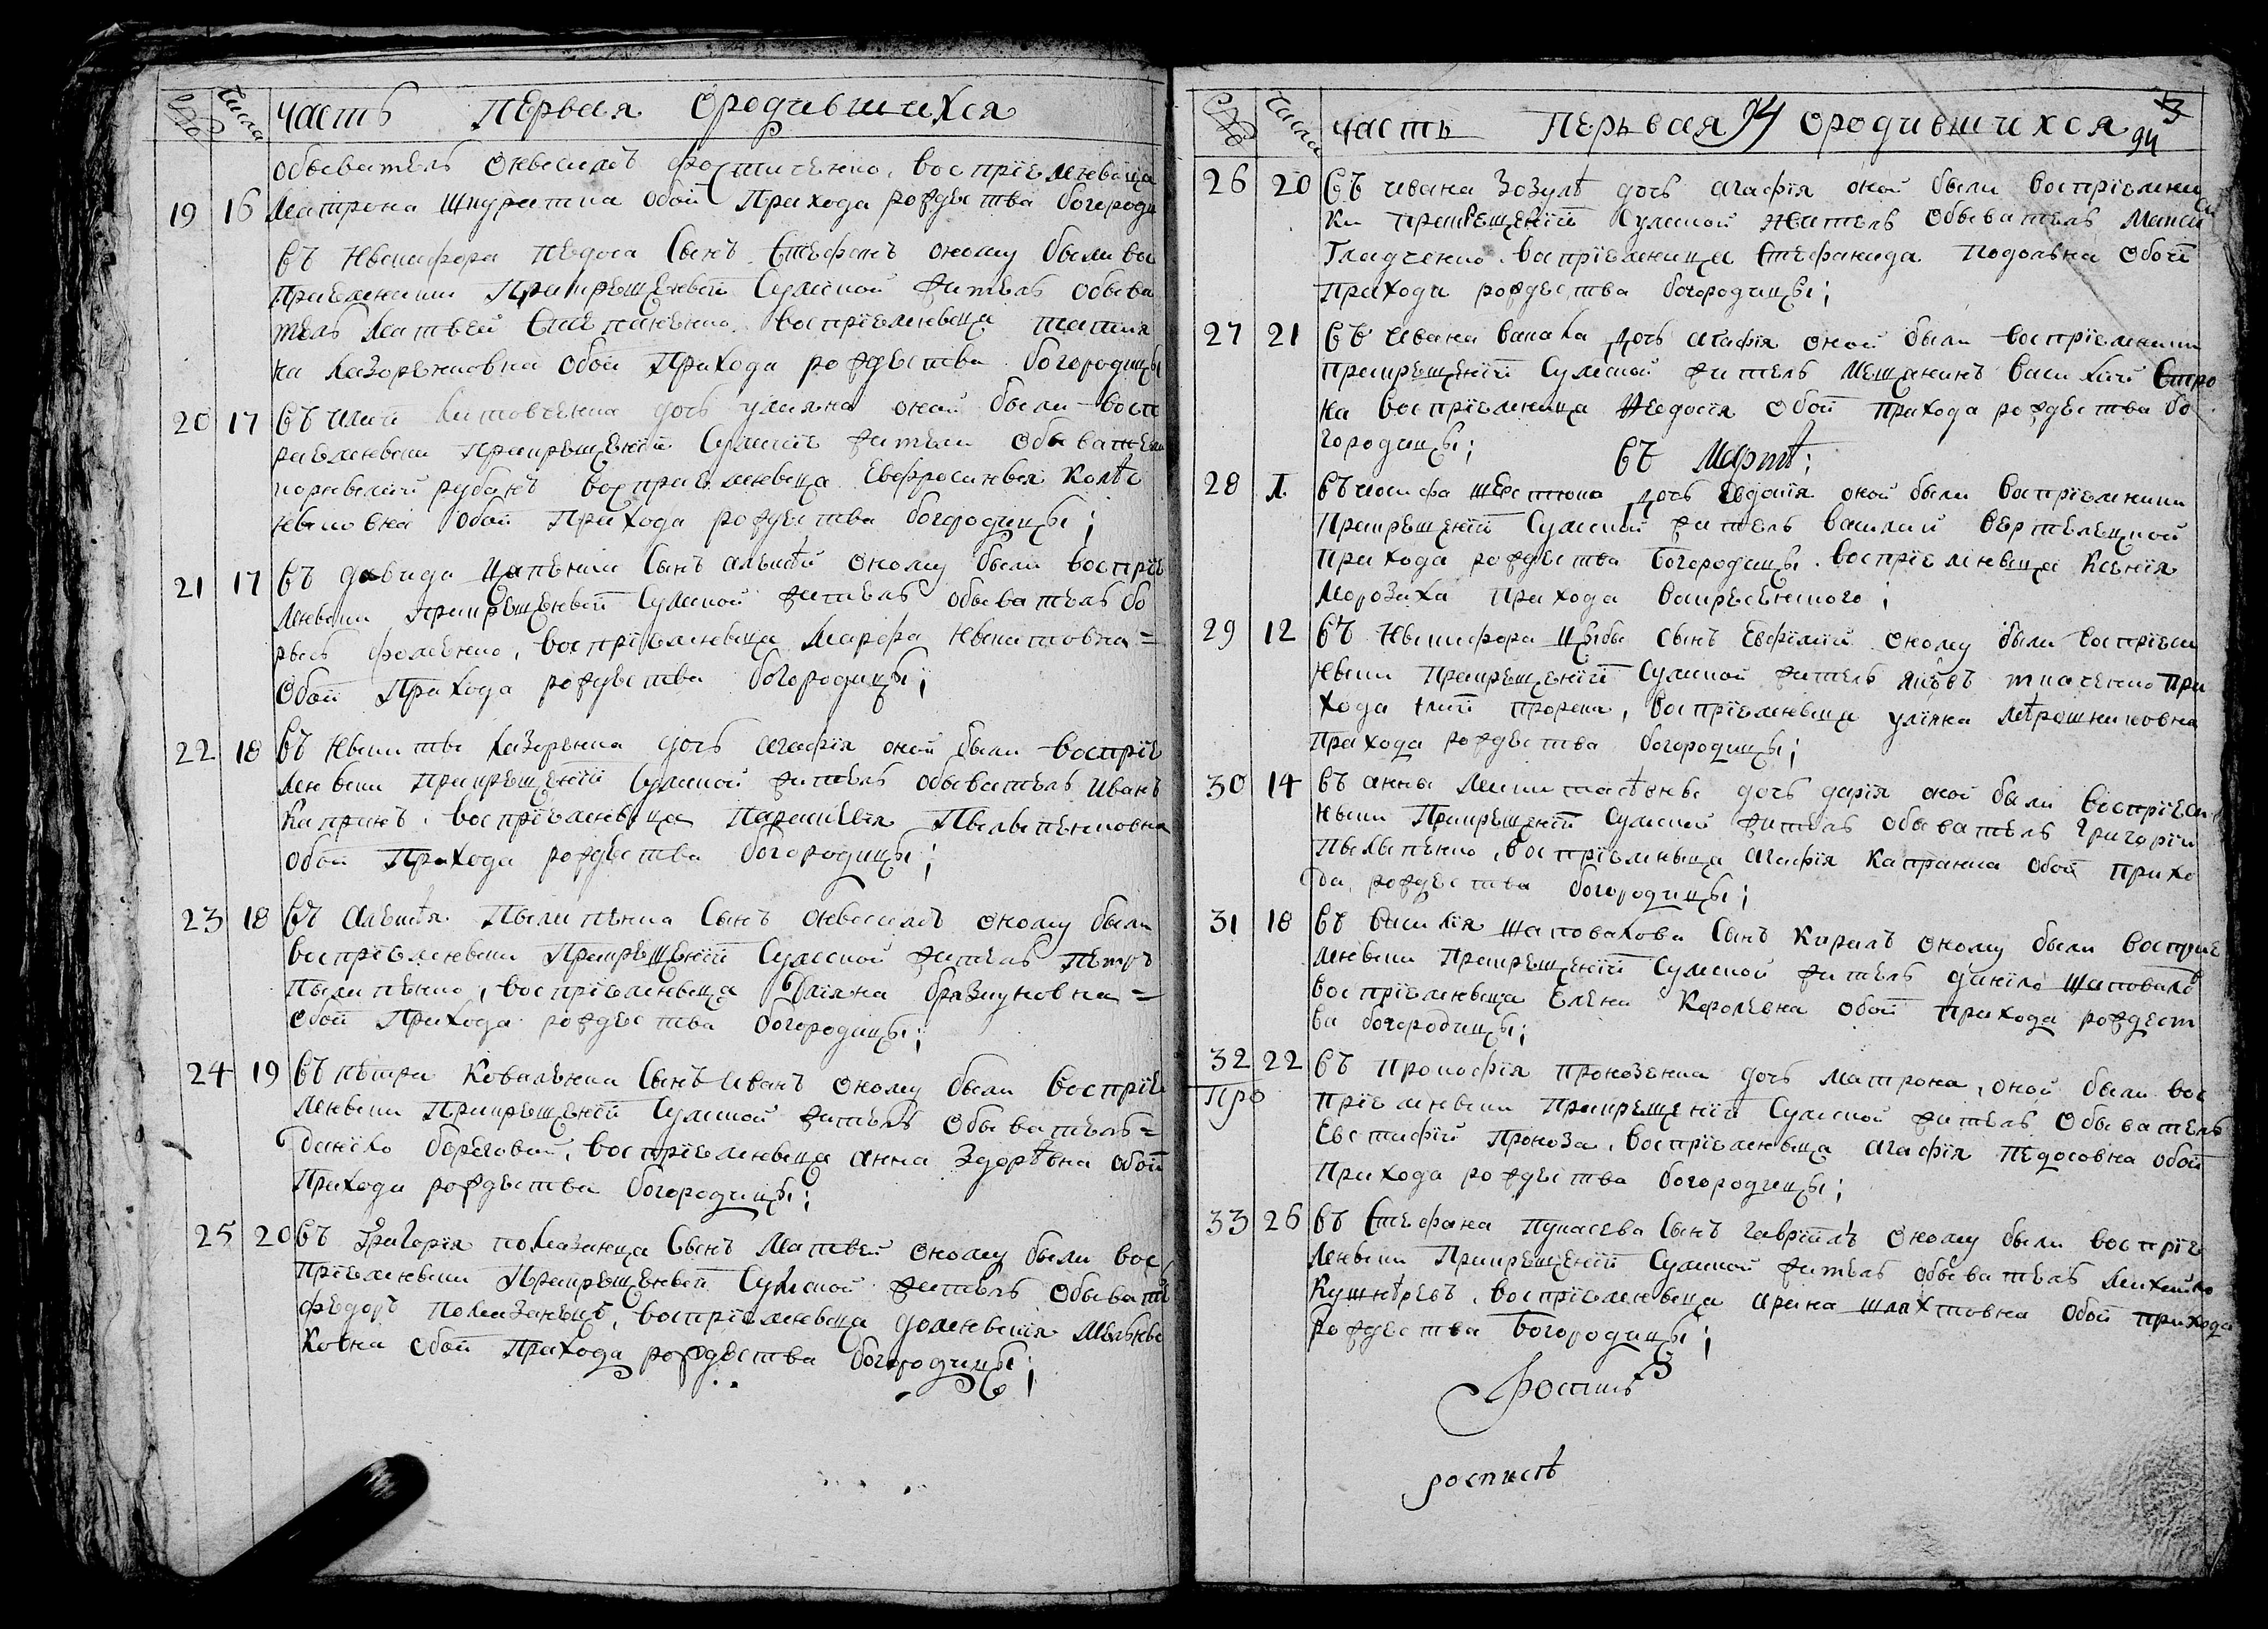 Числа
часть первая ородившихся
обыватель онисимъ воспрїемница
19 16 Матрона обой Прихода рождества богороди
въ Никифора педоса Сынъ Стефанъ оному были во
Приемники При крещенїй Сумской житель обыва
тель Матвей Степаненко воспрїемница татия
на Лазоренковна обой Прихода рождества богородицы
20 17 въ Илїи Литовченка дочь улияна оной были восп
риемники Прикрещенїй Сумскїе жители Обыватели
корнелий рубанъ воспрїемница Евфросиния Колѣс
никовна обой Прихода рождества богородицы;
21 17 въ давида Цапенка Сынъ алексѣй оному были воспрїе
мники Прикрещенїй Сумской житель обыватель бо
рысъ фоменко, воспрїемница Марфа Никитовна=
Обой Прихода рождества богородицы;
22 18 въ Никиты Лазоренка дочь агафїя оной были воспрїе
мники прикрещенїй Сумской житель обыватель иванъ
Капранъ. воспрїемница Параскевїя Пилипенковна
обой Прихода рождества богородицы;
23 18 въ алексѣя Пилипенка Сынъ онисимъ оному были
воспрїемники Прикрещенїй Сумской житель петръ
Пилипенко, воспрїемница Улїяна бразнуковна=
обой Прихода рождества богородицы;
24 19 въ петра Коваленка Сынъ иванъ оному были воспрїе
мники Прикрещенїй Сумской житель Обыватель=
данїло береговий, воспрїемница анна Здорѣвна обой
Прихода рождества богородицы;
25 20 въ Григорїя помазанца Сынъ Матвей оному были вос
прїемники Прикрещенїй Сумской житель Обывате
федоръ помазанецъ, воспрїемница домникїя Мельни
ковна обой Прихода рождества богородицы;
Числа
часть Перьвая 94 ородившихся 94
26 20 въ ивана Зозулѣ дочь агафїя оной были воспрїемни
ки прикрещенїй Сумской житель обыватель Макси
Гладченко. воспрїемница Стефанида Подольвна обой
Прихода рождества богородицы;
27 21 въ ивана вакала дочь агафїя оной были воспрїемники
прикрещенїй Сумской житель Мещанинъ василий Стро
ка воспрїемница Федосїя обой прихода рождества бо
городицы;
въ Мартѣ;
28 въ иосифа шерстюка дочь Евдокїя оной были воспрїемники
Прикрещенїй Сумской житель василий вертелецкой
прихода рождества богородицы. воспрїемница Ксенїя
Морозиха прихода воскресенского;
29 12 въ Никифора Цыбы сынъ Евфимїй оному были воспрїем
ники Прикрещенїй Сумской житель яковъ ткаченко При
хода илїи пророка, воспрїемница улїяна Мѣрошниковна
Прихода рождества богородицы;
30 14 въ анны дочь дарїя оной были воспрїем
ники Прикрещенїй Сумской житель обыватель григорїй
Пилипенко, воспрїемница агафїя Капранка обой прихо
да рождества богородицы;
31 18 въ василїя шаповалова Сынъ Кирилъ оному были восприе
мники Прикрещенїй Сумской житель данїло шаповалъ
воспрїемница Елена Королевна обой Прихода рождест
ва богородицы;
32 22 въ Прокофїя Проnозенка дочь Матрона, оной были вос
Про прїемники Прикрещенїй Сумской житель Обыватель
Евстафїй Проноза, воспрїемница агафїя педосовна обой
Прихода рождества богородицы;
33 26 въ Стефана Пукасева Сынъ гаврїилъ Оному были воспрїе
мники Прикрещенїй Сумской житель обыватель Михайло
Кушнѣревъ, воспрїемница ирина шлахтовна Обой прихода
рождества богородицы;
роспись
роспистѣ